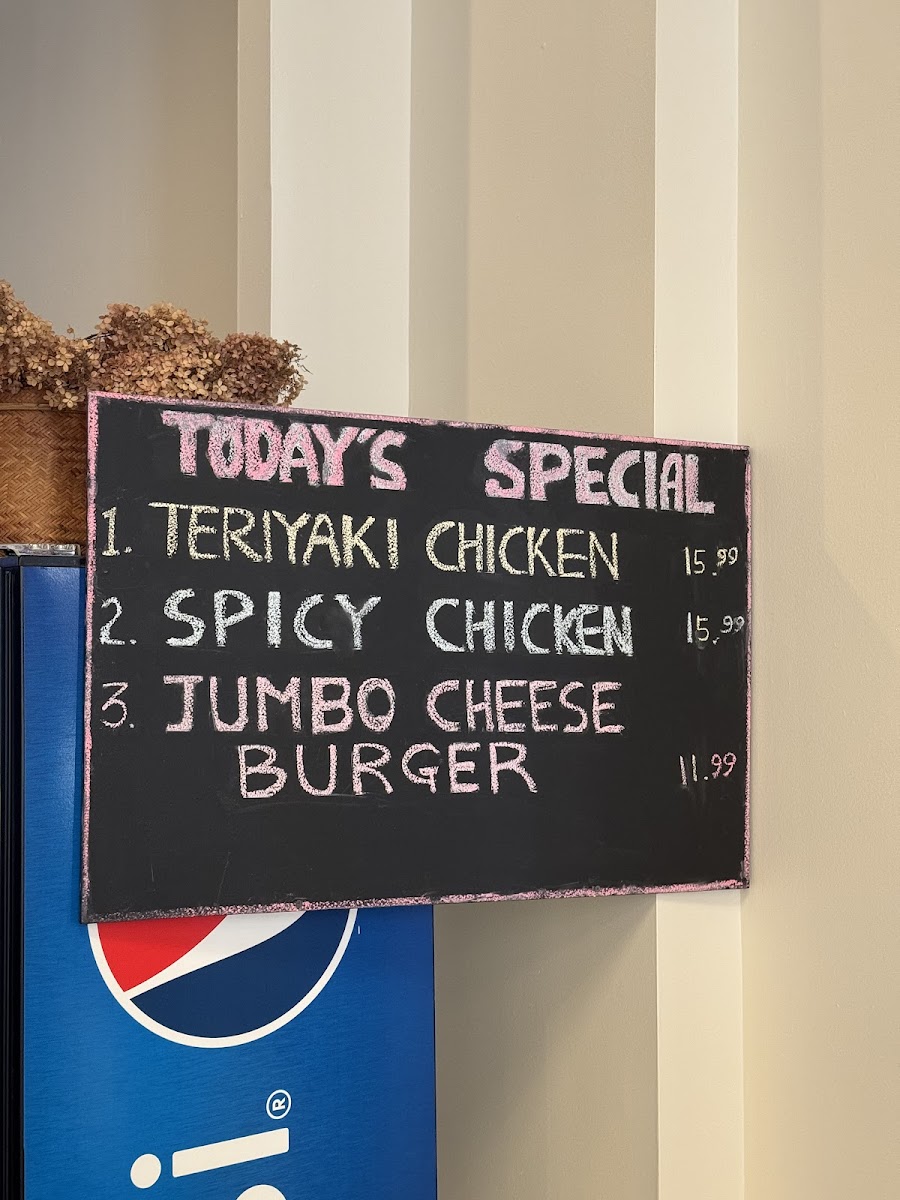 TODAY'S SPECIAL
1. TERIYAKI CHICKEN 15.99
2. SPICY CHICKEN 15.99
3. JUMBO CHEESE
BURGER 11.99
si®